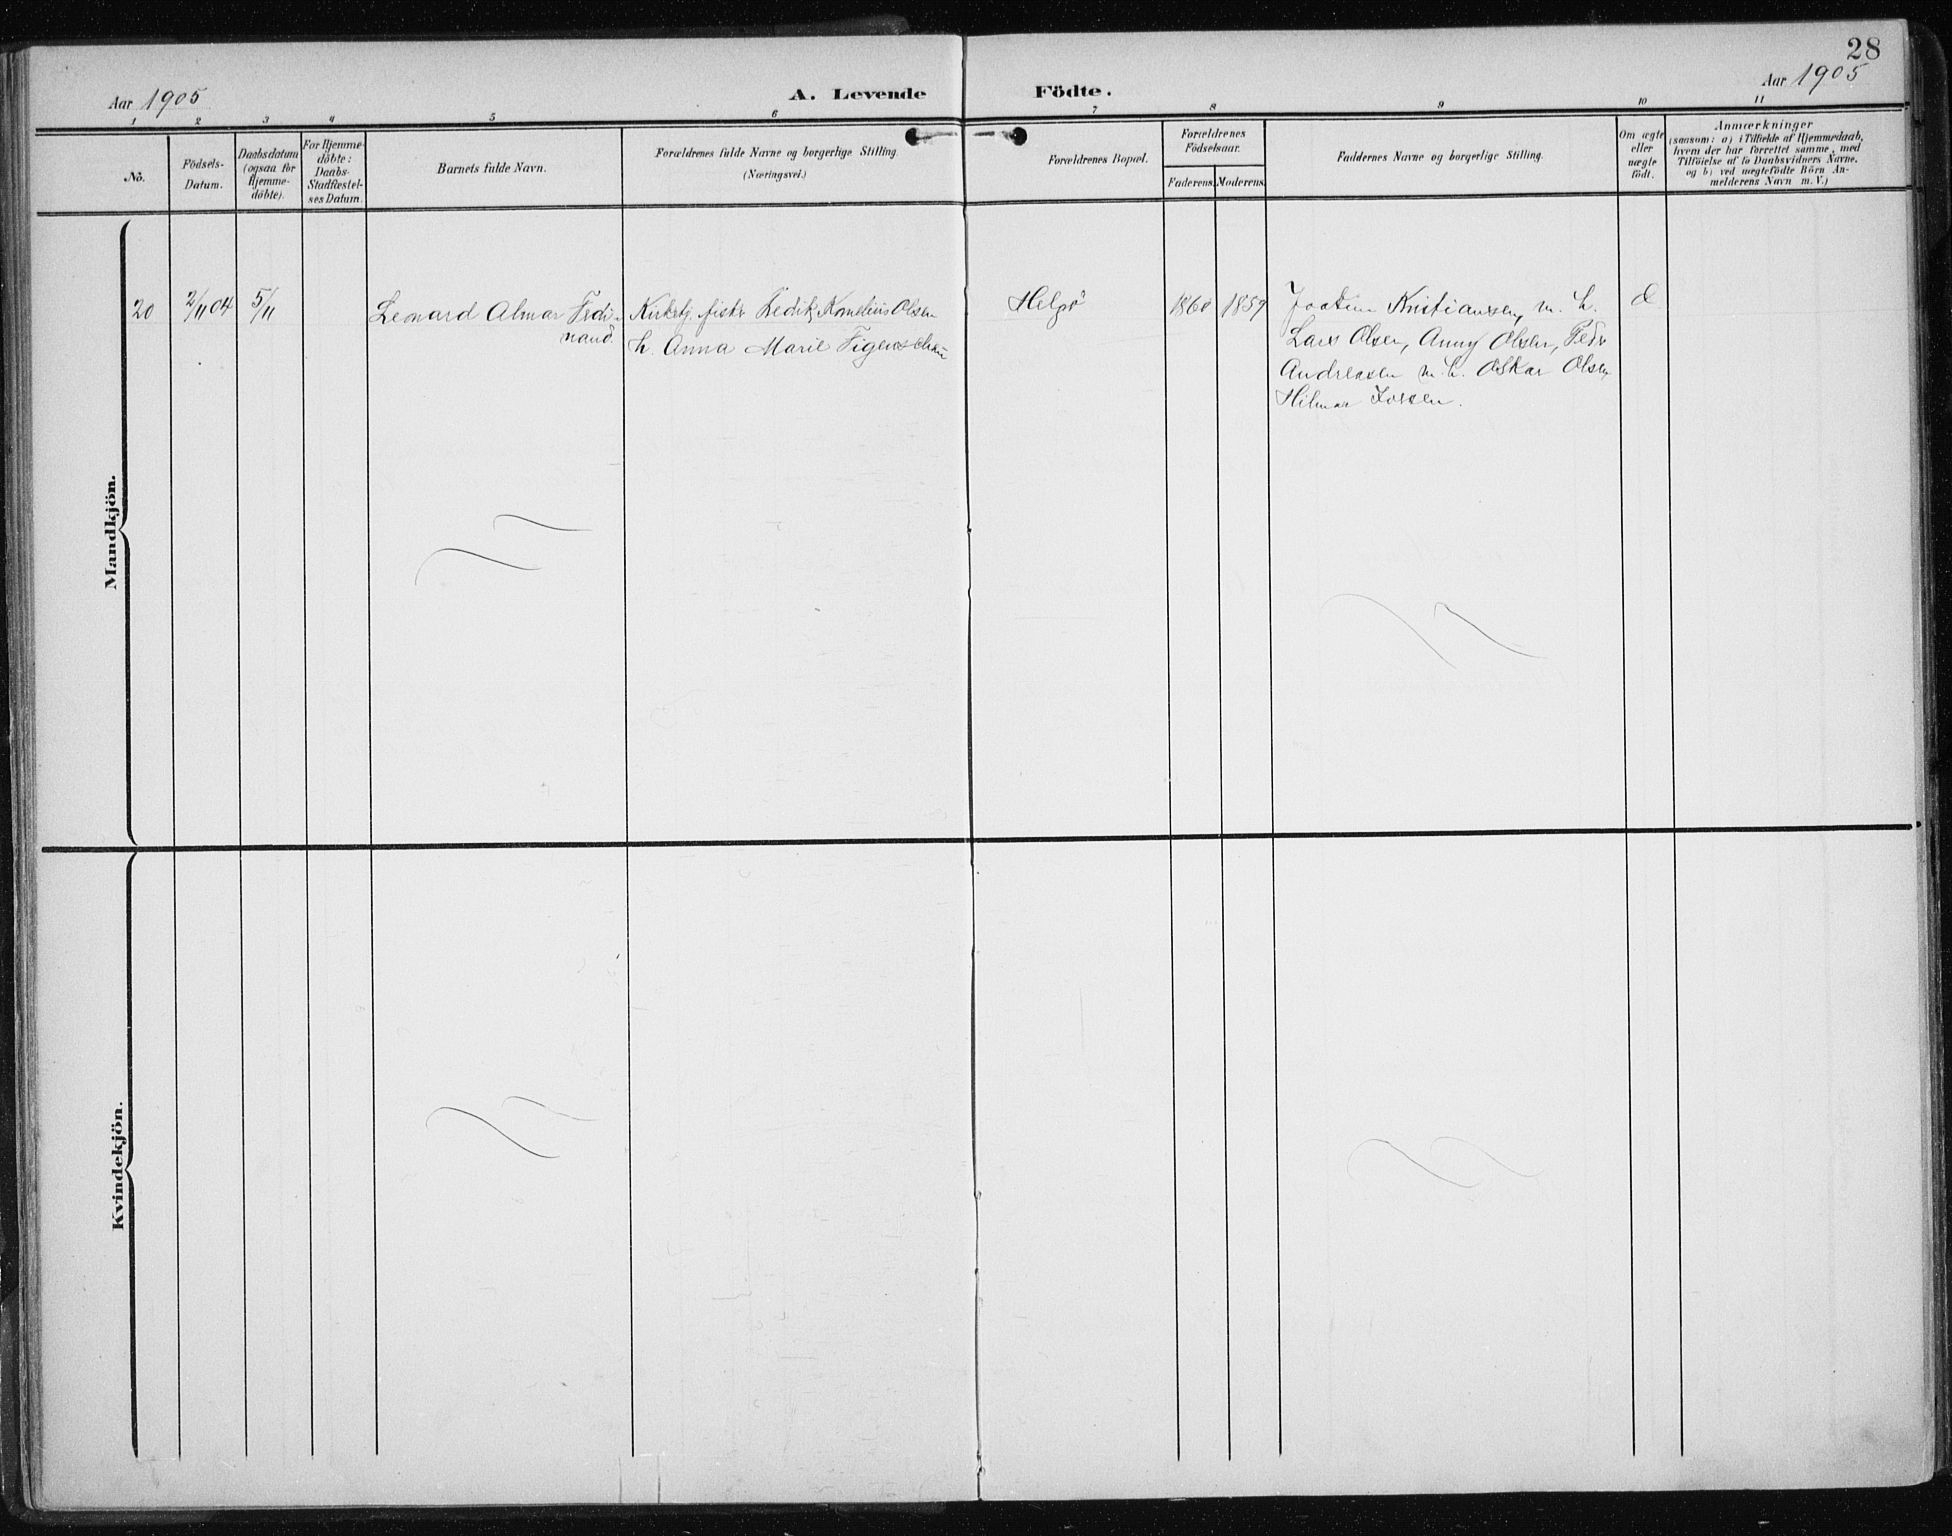 28
Aar 1905
A. Levende Födte.
Aar 1905
1 2 3 4 5 6 7 8 9 10 11
No.
Födsels-
Datum.
Daabsdatum
(ogsaa for
Hjemme-
døbte).
For Hjemme-
døbte:
Daabs-
Stadfæstel-
ses Datum.
Barnets fulde Navn.
Forældrenes fulde Navne og borgerlige Stilling.
(Næringsvei.)
Forældrenes Bopæl.
Forældrenes
Födselsaar.
Faderens. Moderens.
Faddernes Navne og borgerlige Stilling.
Om ægte
eller
uægte
födt.
Anmærkninger
(saasom: a) i Tilfælde af Hjemmedaab,
hvem der har forrettet samme, med
Tilföielse af to Daabsvidners Navne.
og b) ved uægtefödte Börn An-
melderens Navn m. V.)
Mandkjön.
20
2/11 04
5/11
Leonard Almar Ferdi-
nand.
Kirketj. fisker Kornelius Olsen
h. Anna Marie Figenschau
Helgö
1860
1859
Kristiansen, m. h.
Lars Olsen, Anny Olsen, Peder
Andreasen m. h. Oskar Olsen
Hilmar
Kvindekjön.